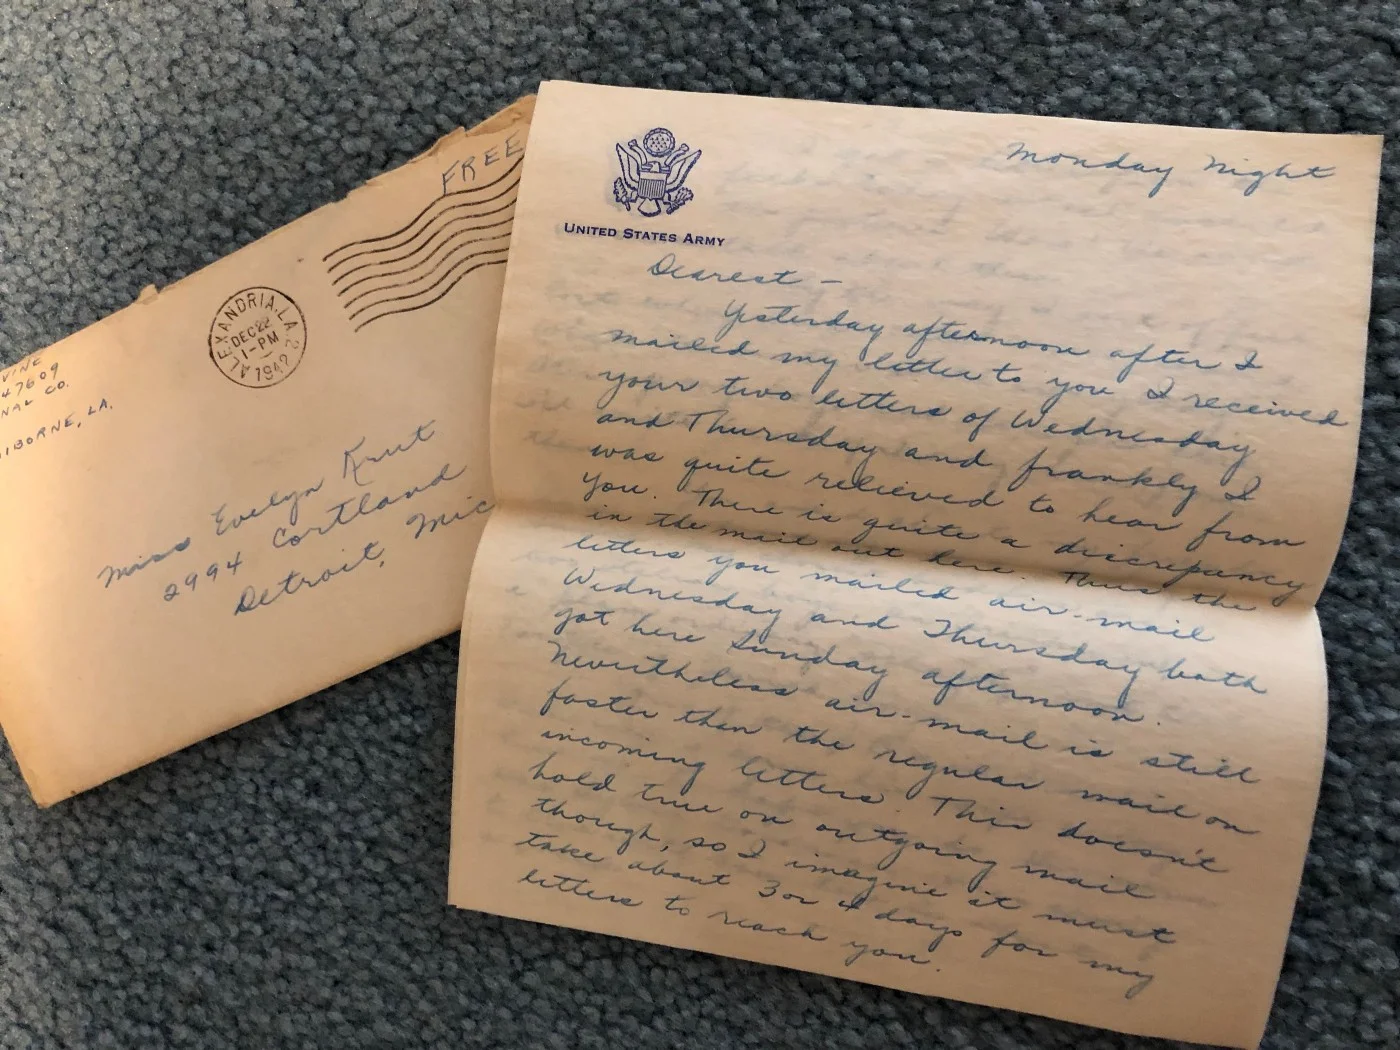 FREE
ALEXANDRIA, LA. 2
DEC 22
1-PM
1942
VINE
47609
NAL CO.
AIBORNE, LA.
Miss Evelyn Krut
2994 Cortland
Detroit, Mic
UNITED STATES ARMY
Monday Night
Dearest –
Yesterday afternoon after I
mailed my letter to you I received
your two letters of Wednesday
and Thursday and frankly I
was quite relieved to hear from
you. There is quite a discrepancy
in the mail out here. Thus the
letters you mailed air-mail
Wednesday and Thursday both
got here Sunday afternoon.
Nevertheless air-mail is still
faster then the regular mail on
incoming letters. This doesn't
hold true on outgoing mail
though, so I imagine it must
take about 3 or 4 days for my
letters to reach you.